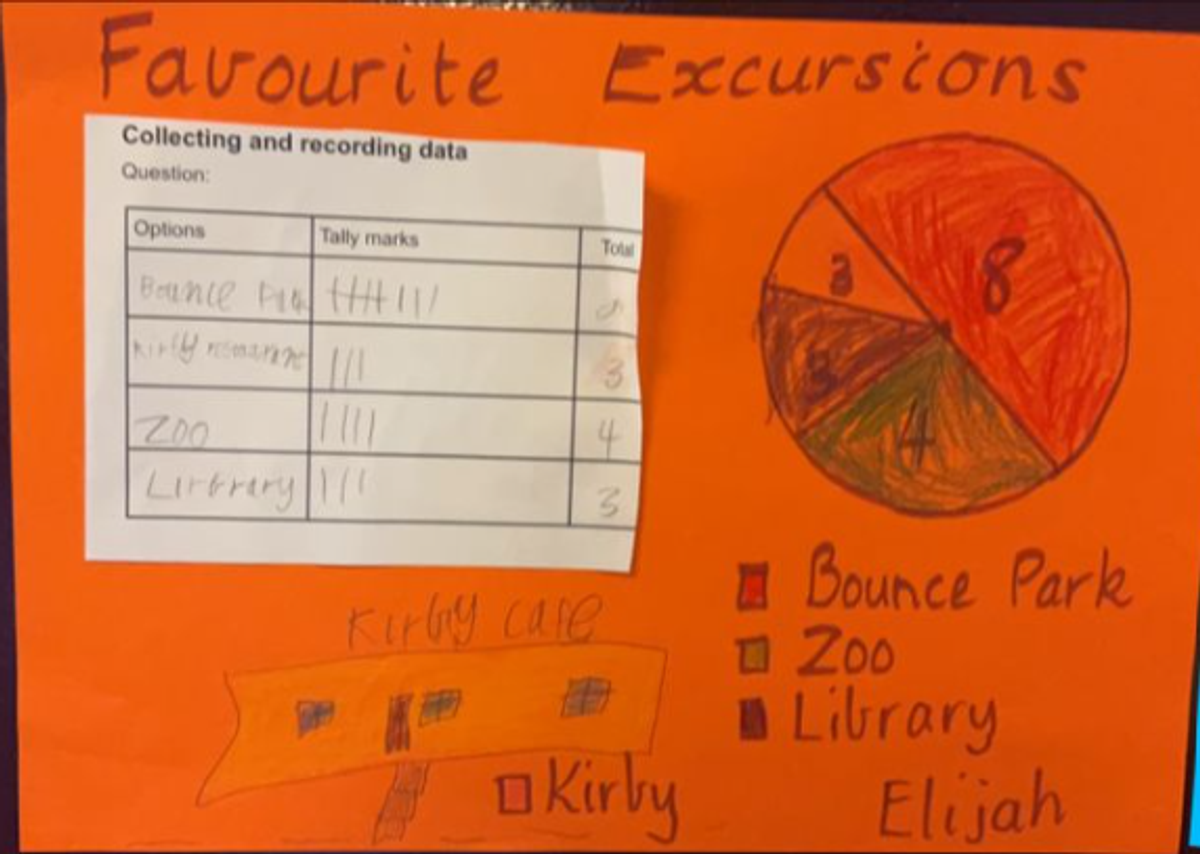 Favourite Excursions
Collecting and recording data
Question:
Options Tally marks Total
Bounce
3
Zoo 4
Lirbrary 3
8
3
3
4
Bounce Park
Zoo
Library
Kirby cafe
Kirby
Elijah